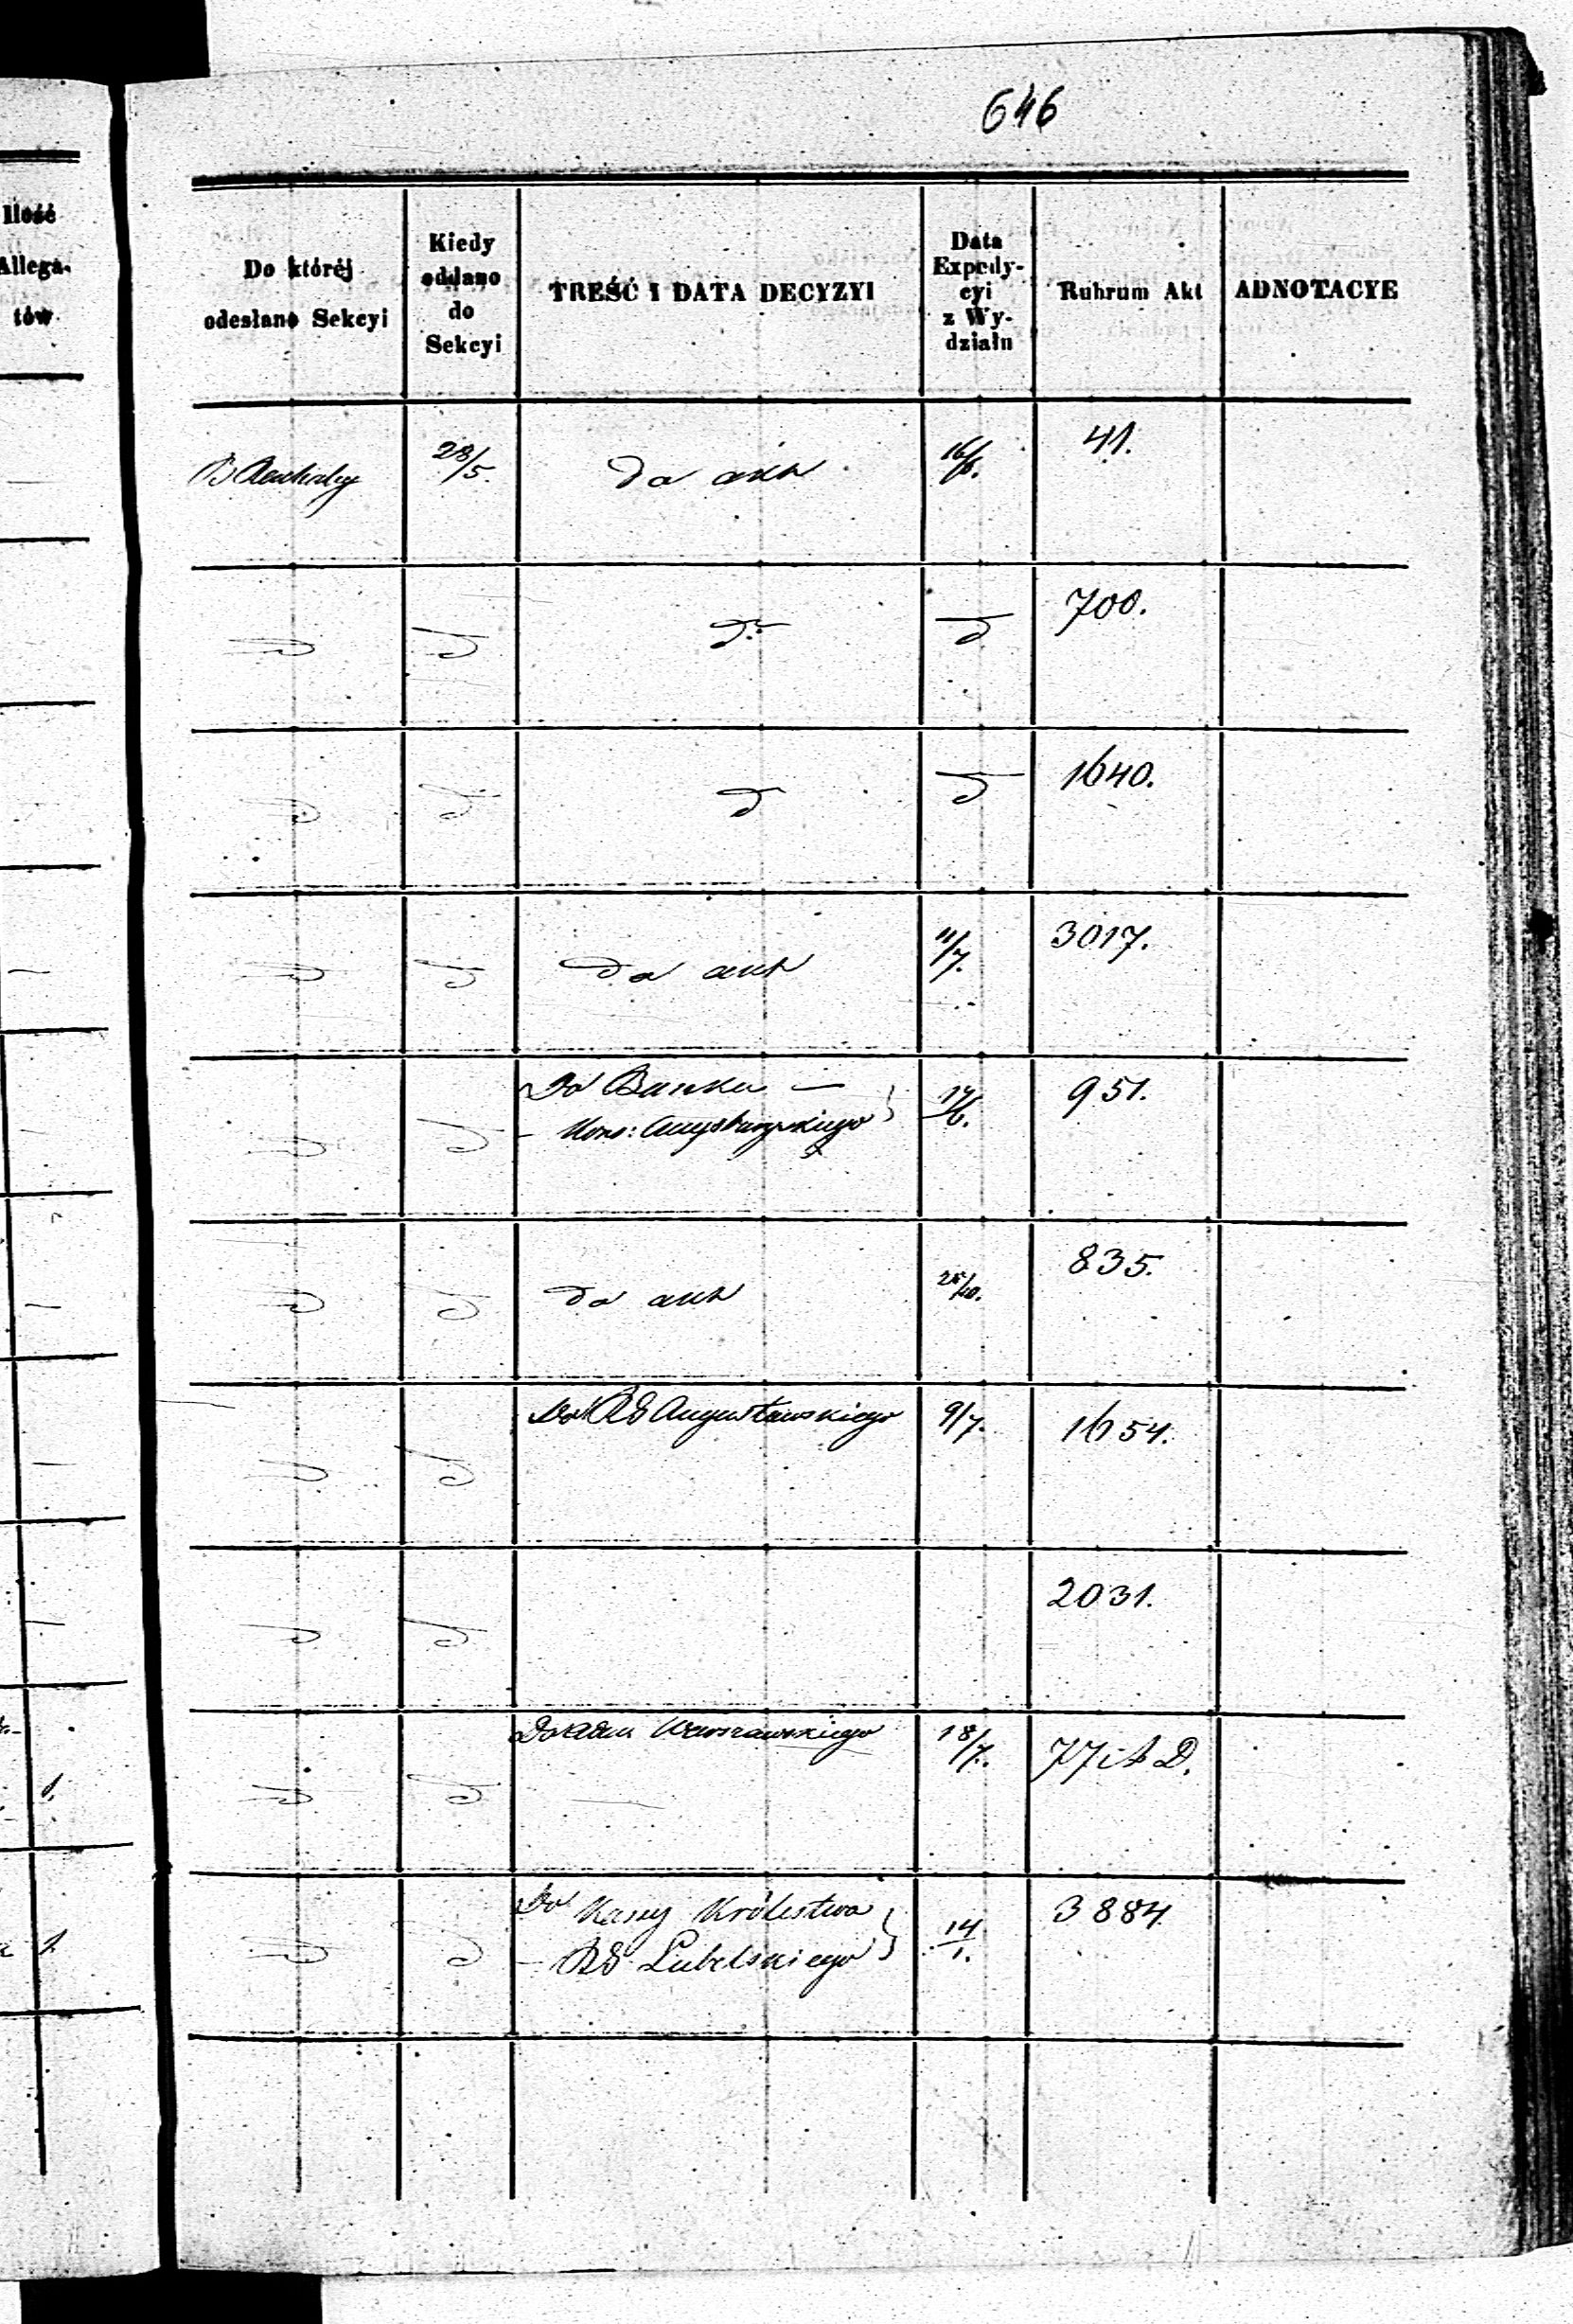 646
Ilość
Allega-
tów
Do któréj
odesłano Sekcyi
Kiedy
oddano
do
Sekcyi
TREŚĆ I DATA DECYZYI
Data
Expedy-
cyi
z Wy-
działu
Rubrum Akt
ADNOTACYE
28/5.
do akt
16/6.
41.
d
d
d
d
700.
d
d
d
d
1640.
d
d
do akt
11/7.
3017.
d
d
Do Banku —
17/6.
951.
d
d
do akt
25/10.
835.
d
d
Do RG Augustowskiego
9/7.
1654.
d
d
2031.
d
d
Warszawskiego
18/7.
77 D.
1.
d
d
Do Kassy Królestwa
— RG Lubelskiego
14/1.
3884
1.